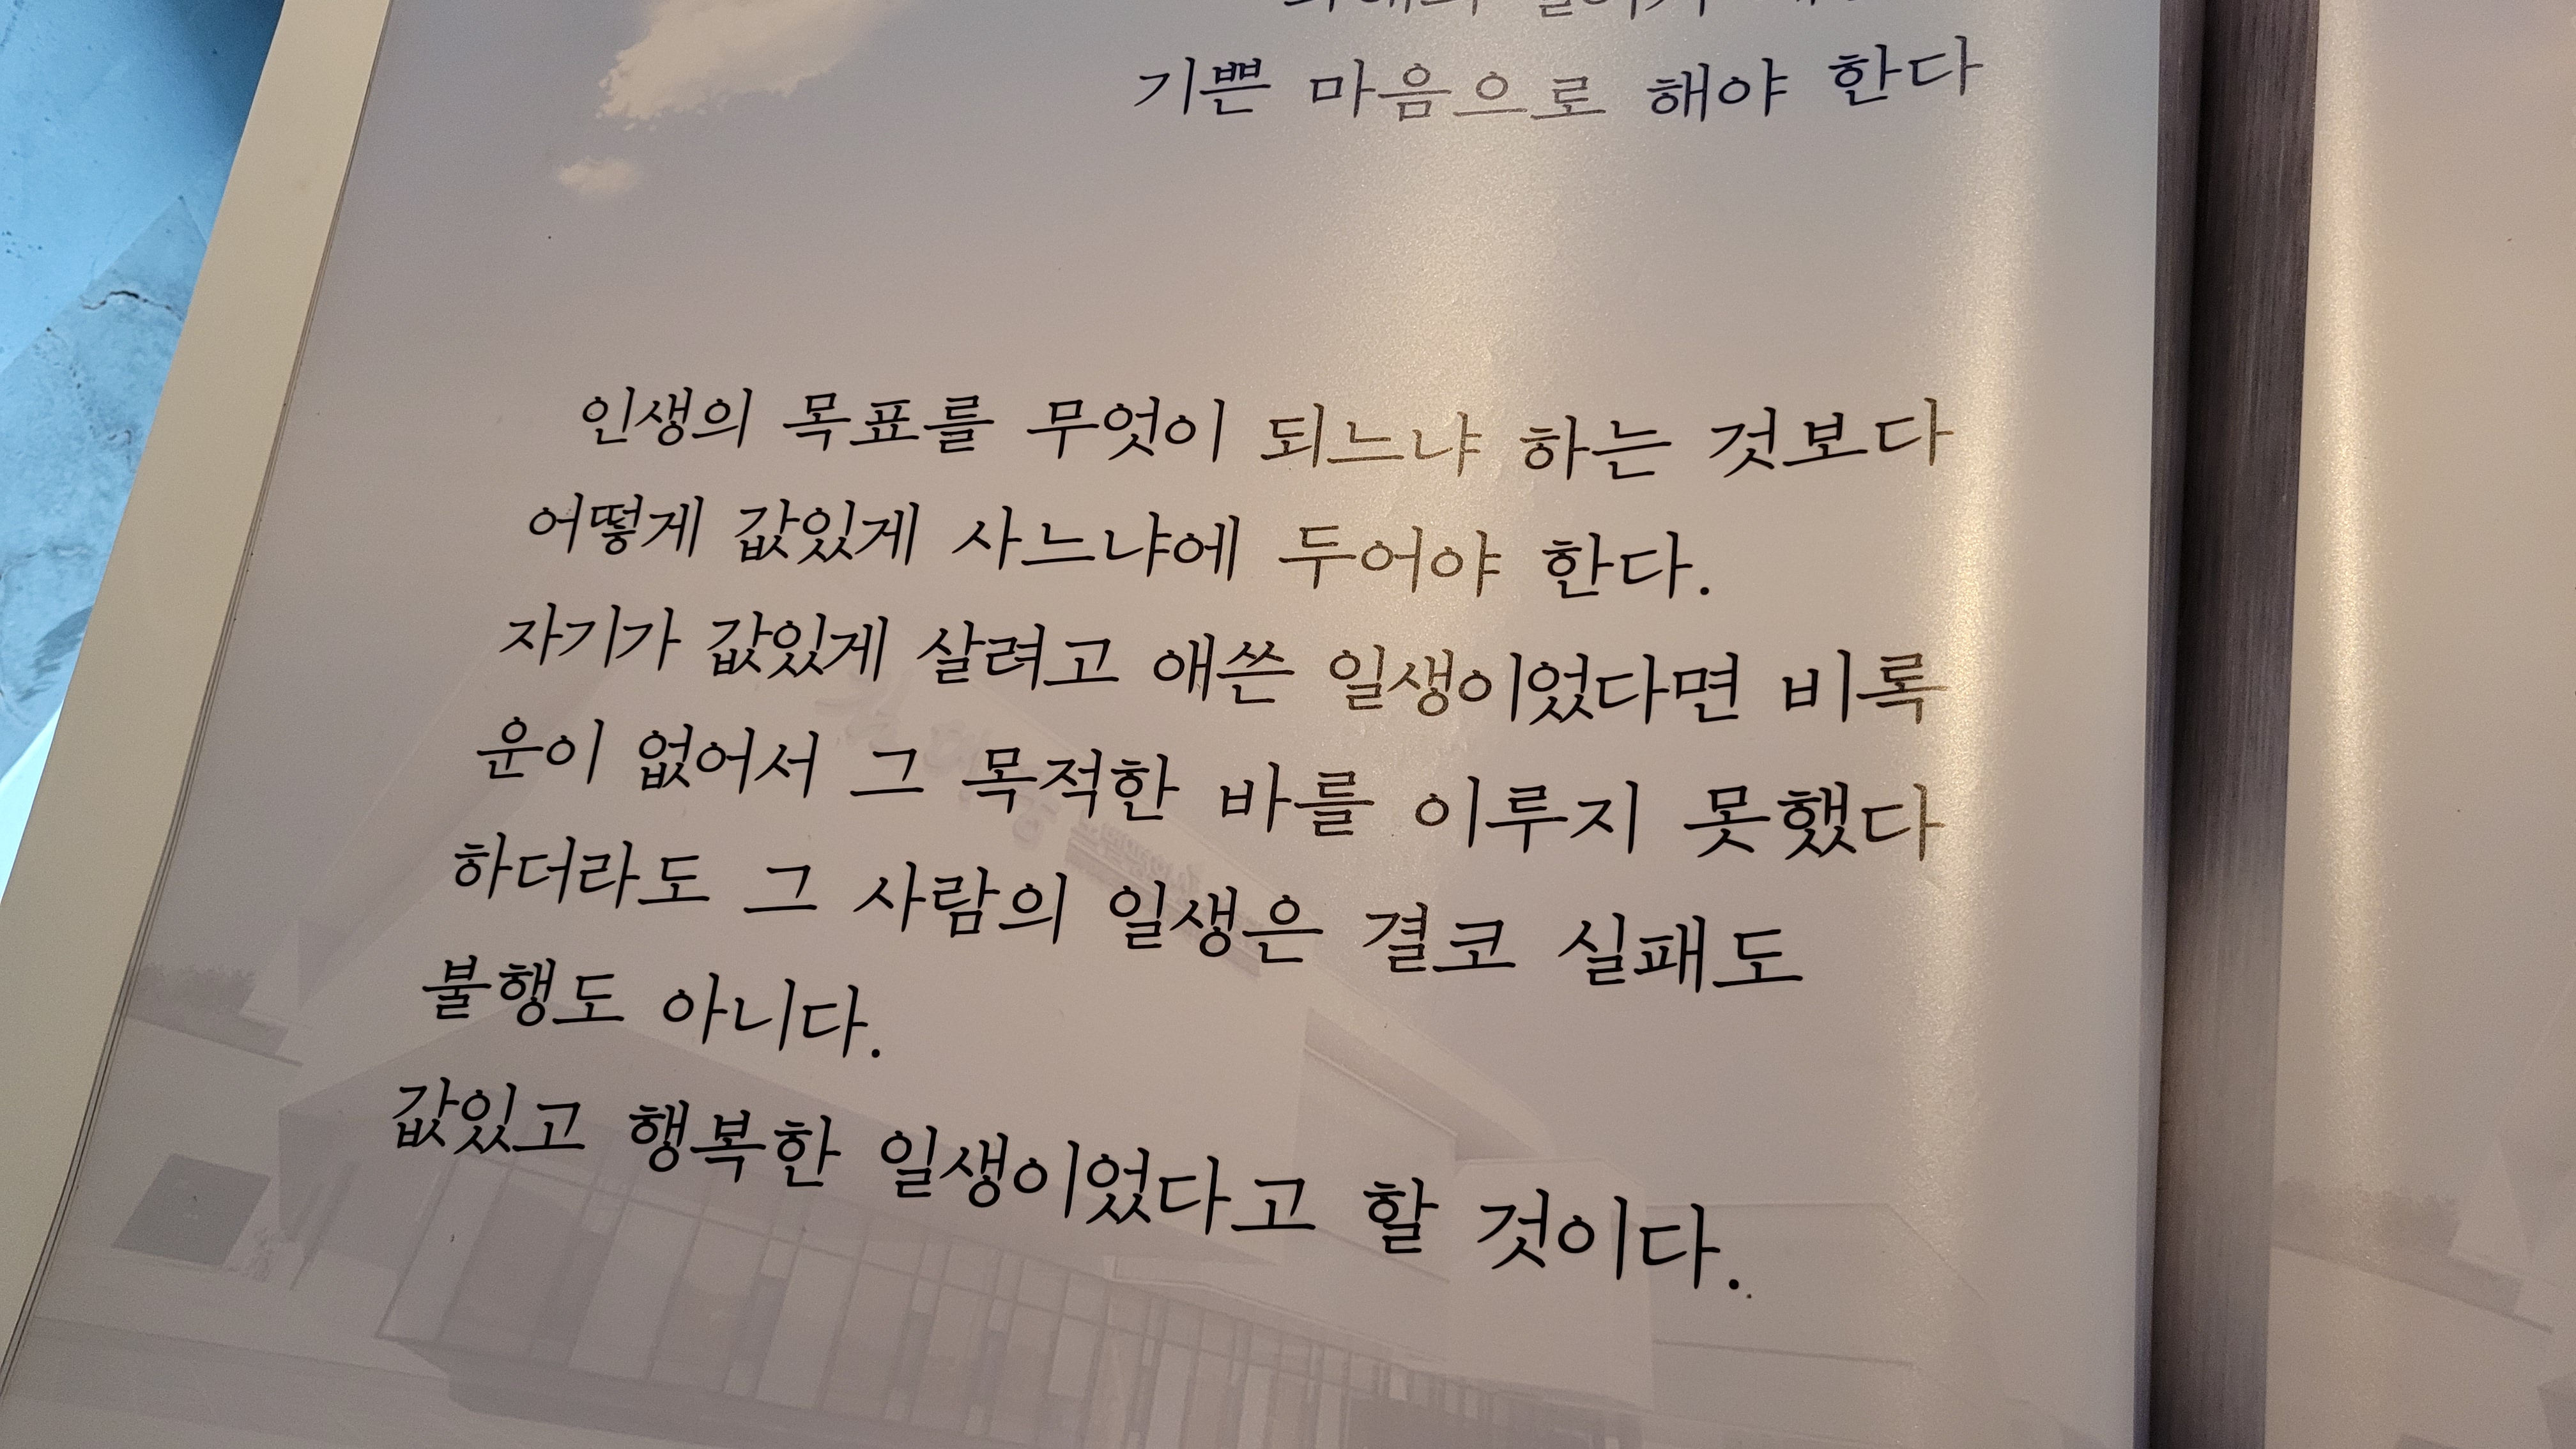 기쁜 마음으로 해야 한다
인생의 목표를 무엇이 되느냐 하는 것보다
어떻게 값있게 사느냐에 두어야 한다.
자기가 값있게 살려고 애쓴 일생이었다면 비록
운이 없어서 그 목적한 바를 이루지 못했다
하더라도 그 사람의 일생은 결코 실패도
불행도 아니다.
값있고 행복한 일생이었다고 할 것이다.